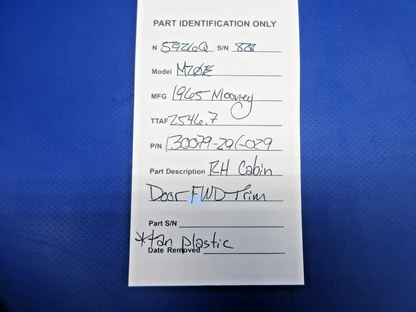 PART IDENTIFICATION ONLY
N 5926Q S/N 828
Model M20E
MFG 1965 Mooney
TTAF 2546.7
P/N 130079-201-029
Part Description RH Cabin
Door FWD Trim
Part S/N
*tan plastic
Date Removed